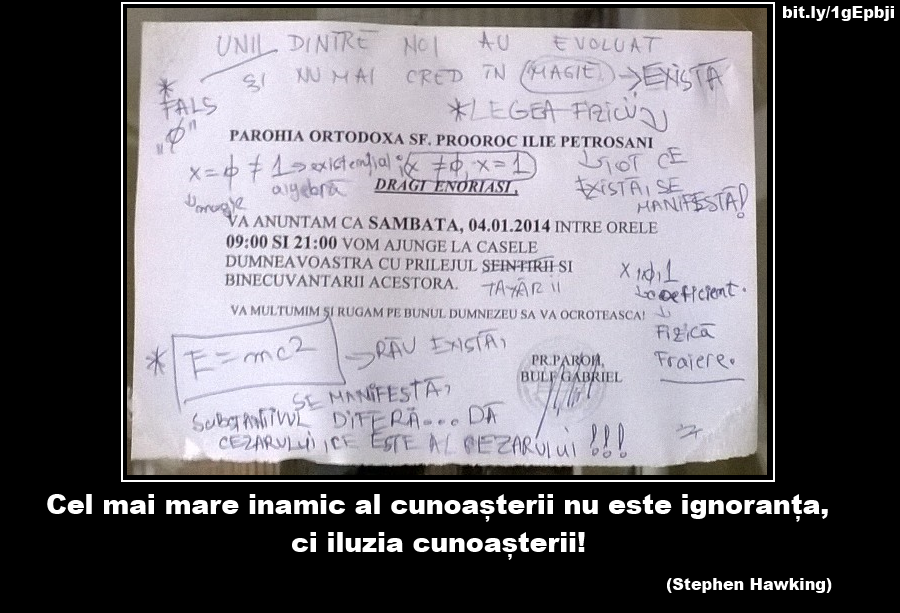 bit.ly/1gEpbji
UNII DINTRE NOI AU EVOLUAT
ȘI NU MAI CRED ÎN (MAGIE) → EXISTĂ
* FALS
"Φ"
*LEGEA FIZICII
PAROHIA ORTODOXA SF. PROOROC ILIE PETROSANI
x = Φ ≠ 1 → existențial; x ≠ Φ, x = 1
algebră
magie
TOT CE
EXISTĂ, SE
MANIFESTĂ!
DRAGI ENORIASI,
VA ANUNTAM CA SAMBATA, 04.01.2014 INTRE ORELE
09:00 SI 21:00 VOM AJUNGE LA CASELE
DUMNEAVOASTRA CU PRILEJUL SFINTIRII SI
BINECUVANTARII ACESTORA. TAXĂRII
x, Φ, 1
coeficient.
Fizică
Fraiere.
VA MULTUMIM SI RUGAM PE BUNUL DUMNEZEU SA VA OCROTEASCA!
* E = mc2 → RĂU EXISTĂ,
SE MANIFESTĂ,
PR.PAROH,
BULF GABRIEL
SUBSTANTIVUL DIFERĂ... DĂ
CEZARULUI CE ESTE AL CEZARULUI !!!
Cel mai mare inamic al cunoașterii nu este ignoranța,
ci iluzia cunoașterii!
(Stephen Hawking)